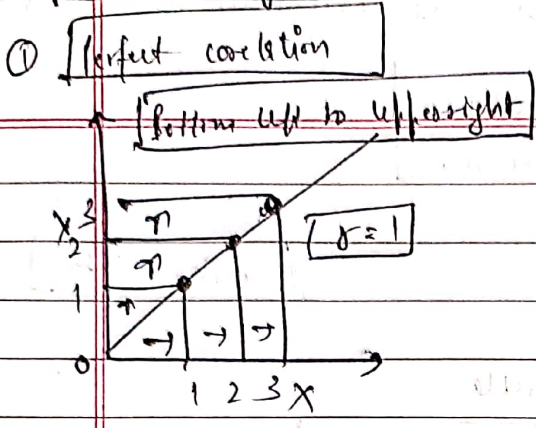 ① Perfect corelation
Bottom left to upperright
3
X
2
r = 1
1
0
1 2 3 X